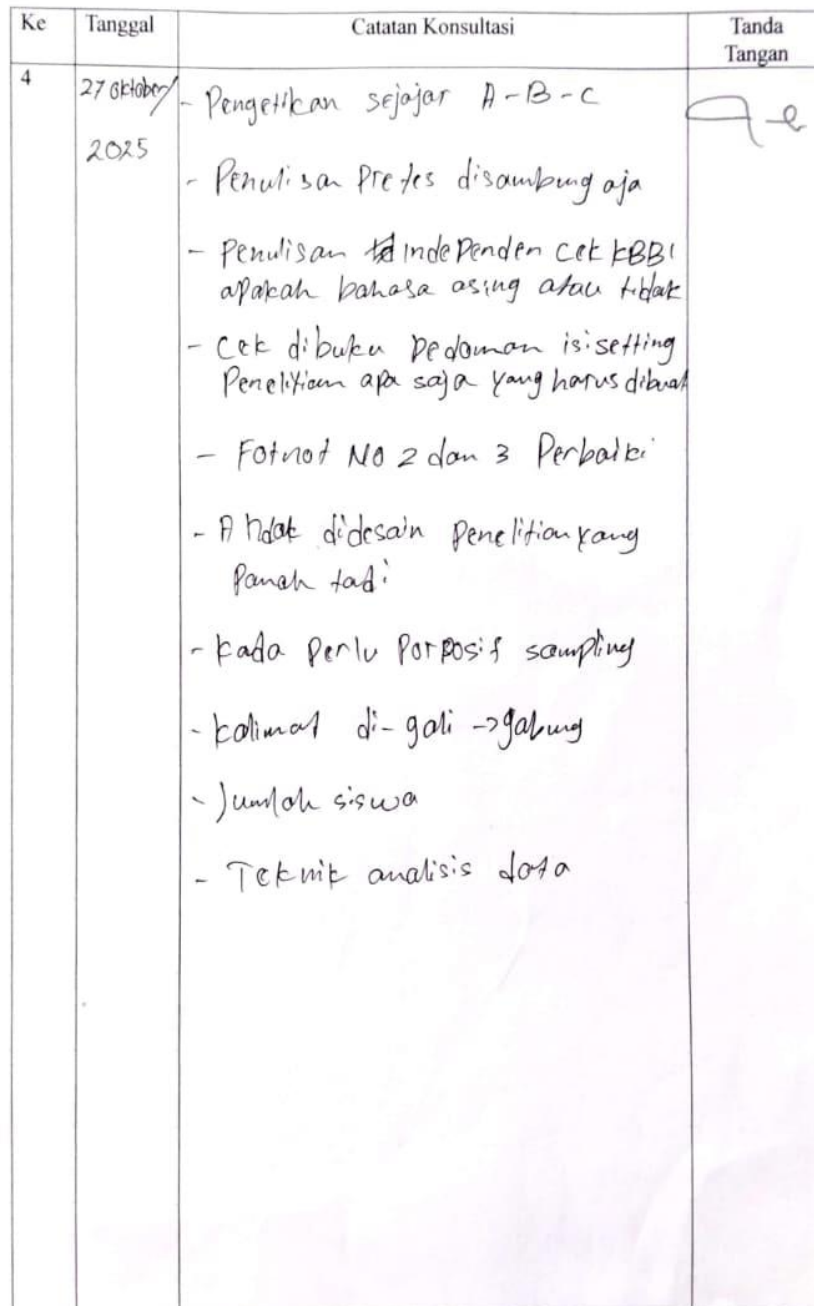 Ke Tanggal Catatan Konsultasi Tanda
Tangan
4 27 Oktober/ - Pengetikan sejajar A-B-C
2025
- Penulisan Pretes disambung aja
- Penulisan independen cek KBBI
apakah bahasa asing atau tidak
- Cek dibuku Pedoman isi setting
Penelitian apa saja yang harus dibuat
- Fotnot NO 2 dan 3 Perbaiki
- didesain Penelitian yang
Panah tadi
- kada perlu Porposif sampling
- kalimat di-gali -> gabung
- Jumlah siswa
- Teknik analisis data